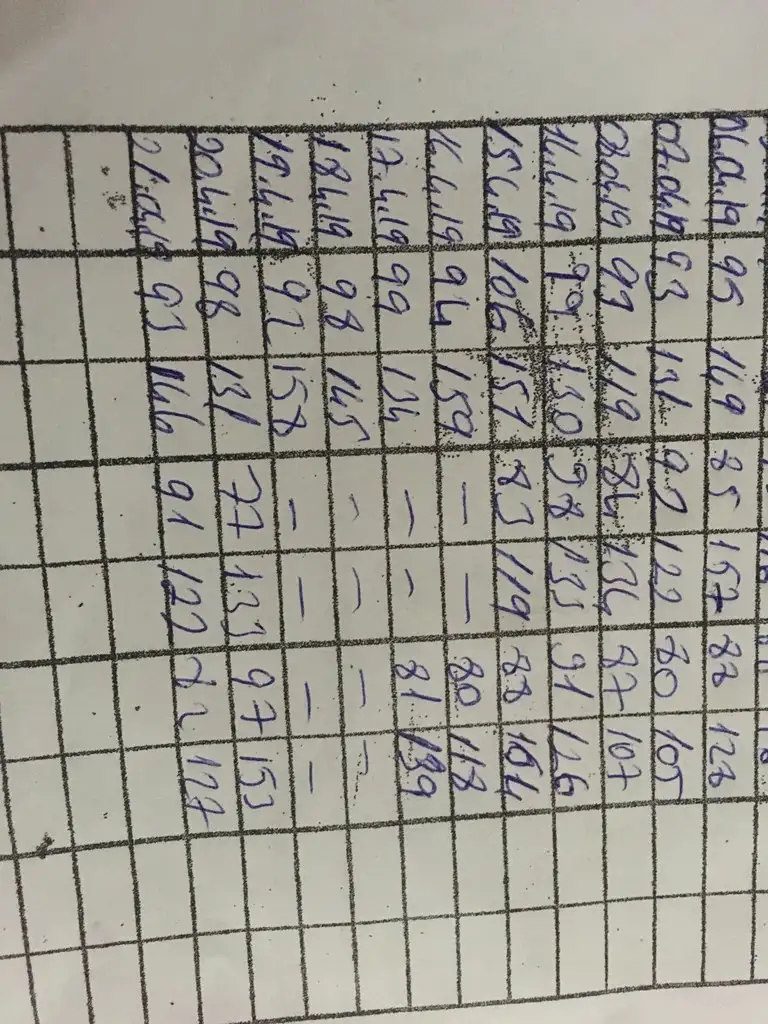 06.04.19 95 149 85 157 88 128
07.04.19 93 131 92 122 80 105
08.04.19 99 119 84 134 87 107
14.4.19 99 130 98 133 91 126
15.4.19 106 151 83 119 88 104
16.4.19 94 159 – – 80 118
17.4.19 99 134 – – 81 139
18.4.19 98 145 – – – –
19.4.19 92 158 – – – –
20.4.19 98 131 77 133 97 153
21.04.19 93 146 91 122 82 127